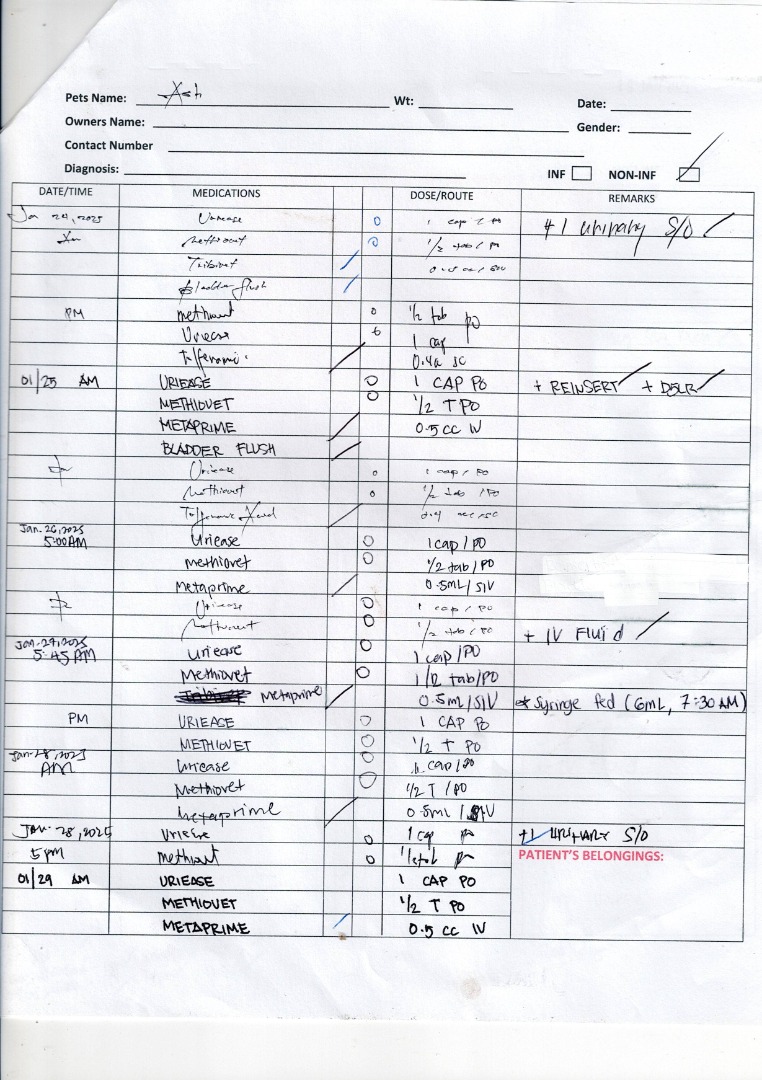 Pets Name: Ash Wt: Date:
Owners Name: Gender:
Contact Number
Diagnosis: INF NON-INF
DATE/TIME MEDICATIONS DOSE/ROUTE REMARKS
Jan 24, 2025 Uriease 1 cap / PO + 1 urinary S/O
1/2 tab / PO
Bladder flush
PM 1/2 tab PO
Uriease 1 cap
SC
01/25 AM URIEASE 1 CAP PO + REINSERT + D5LR
METHIOVET 1/2 T PO
METAPRIME 0.5 CC IV
BLADDER FLUSH
Uriease 1 cap / PO
Methiovet 1/2 tab / PO
Jan. 26, 2025
5:00AM Uriease 1 cap / PO
methiovet 1/2 tab / PO
Metaprime 0.5mL / SIV
Uriease 1 cap / PO
1/2 tab / PO + IV Fluid
5:45 AM Uriease 1 cap / PO
Methiovet 1/2 tab/PO
Metaprime 0.5mL/SIV * Syringe fed (6mL, 7:30 AM)
PM URIEASE 1 CAP PO
METHIOVET 1/2 T PO
Jan-28, 2025
AM Uriease 1 cap / PO
Methiovet 1/2 T / PO
Metaprime 0.5mL / SIV
Jan. 28, 2025 Uriease 1 cap PO +1 URINARY S/O
5 pm PATIENT'S BELONGINGS:
01/29 AM URIEASE 1 CAP PO
METHIOVET 1/2 T PO
METAPRIME 0.5 CC IV